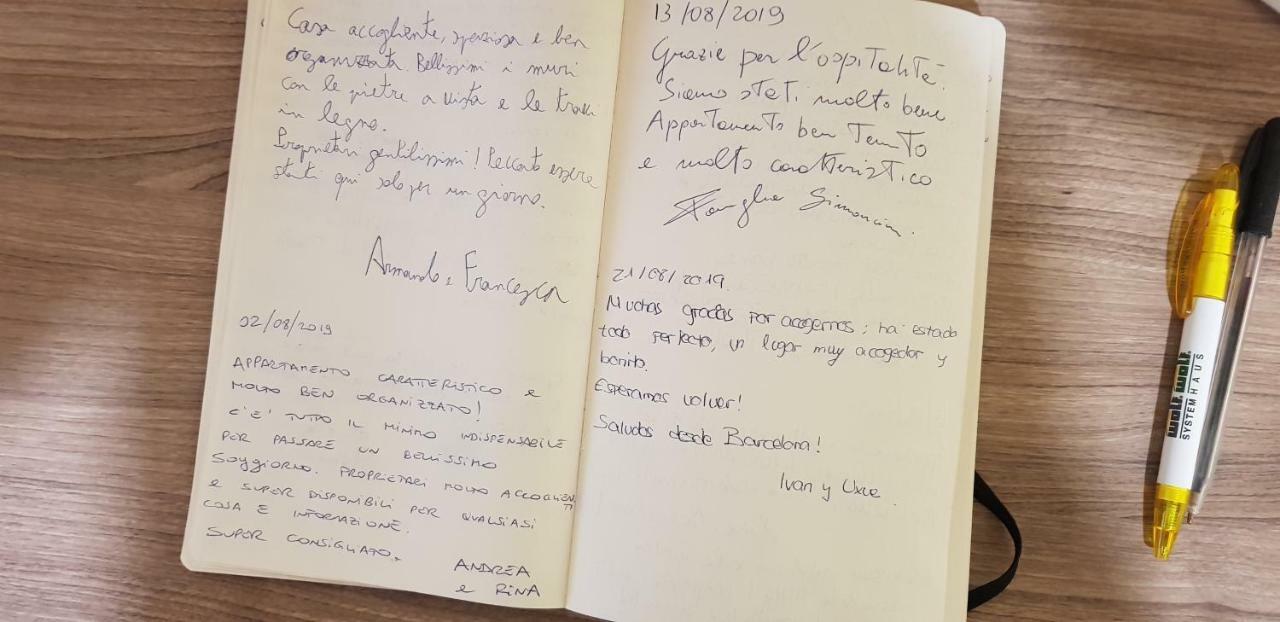 Casa accogliente, spaziosa e ben
organizzata. Bellissimi i muri
con le pietre a vista e le travi
in legno.
Proprietari gentilissimi! Peccato essere
stati qui solo per un giorno.
Armando e Francesca
02/08/2019
APPARTAMENTO CARATTERISTICO e
MOLTO BEN ORGANIZZATO!
C'E' TUTTO IL MINIMO INDISPENSABILE
PER PASSARE UN BELLISSIMO
SOGGIORNO. PROPRIETARI MOLTO ACCOGLIENTI
e SUPER DISPONIBILI PER QUALSIASI
COSA E INFORMAZIONE.
SUPER CONSIGLIATO.
ANDREA
e RINA
13/08/2019
Grazie per l'ospitalità.
Siamo stati molto bene
Appartamento ben tenuto
e molto caratteristico
Famiglia Simoncini.
21/08/2019.
Muchas gracias por acogernos; ha estado
todo perfecto, un lugar muy acogedor y
bonito.
Esperamos volver!
Saludos desde Barcelona!
Ivan y
wolf. wolf.
SYSTEMHAUS